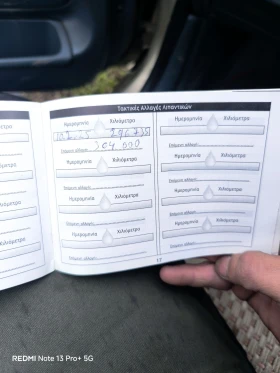 Τακτικές Αλλαγές Λιπαντικών
Ημερομηνία Χιλιόμετρα
Επόμενη αλλαγή
304 000
Ημερομηνία Χιλιόμετρα
Επόμενη αλλαγή
Ημερομηνία Χιλιόμετρα
Επόμενη αλλαγή
Ημερομηνία Χιλιόμετρα
Επόμενη αλλαγή
Ημερομηνία Χιλιόμετρα
Επόμενη αλλαγή
Ημερομηνία Χιλιόμετρα
Επόμενη αλλαγή
Ημερομηνία Χιλιόμετρα
Επόμενη αλλαγή
Ημερομηνία Χιλιόμετρα
Επόμενη αλλαγή
17
REDMI Note 13 Pro+ 5G